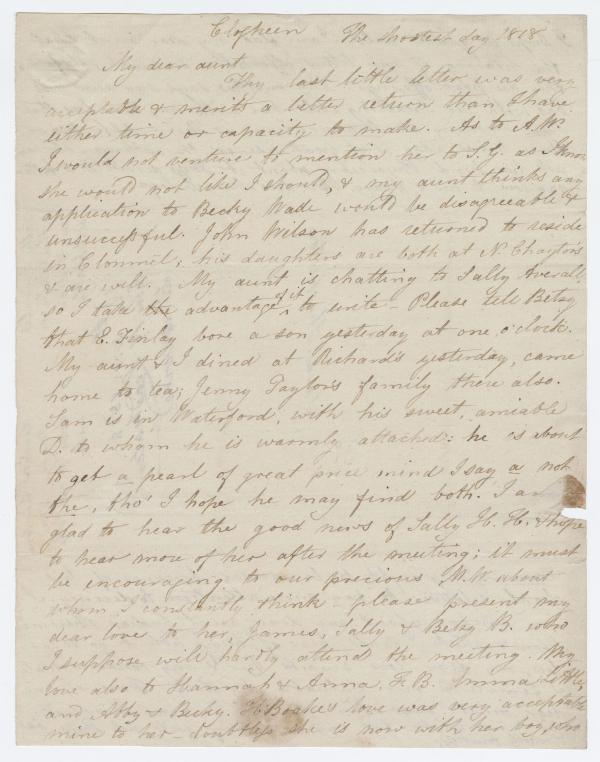 Clogheen The shortest day 1818
My dear aunt
Thy last little letter was very
acceptable & merits a better return than I have
either time or capacity to make. As to A.W.
I would not venture to mention her to S. G. as I know
she would not like I should, & my aunt thinks any
application to Becky Wade would be disagreeable &
unsuccessful. John Wilson has returned to reside
in Clonmel, his daughters are both at N. Chaytor's
& are well. My aunt is chatting to Sally Averall
so I take the advantage of it to write - Please tell Betsy
that E. Finlay bore a son yesterday at one o'clock.
My aunt & I dined at Richard's yesterday, came
home to tea; Jenny Taylor's family there also.
Sam is in Waterford, with his sweet, amiable
D. to whom he is warmly attached: he is about
to get a pearl of great price mind I say a not
the, tho' I hope he may find both. I am
glad to hear the good news of Sally H. H. & hope
to hear more of her after the meeting; it must
be encouraging to our precious M. W. about
whom I constantly think - please present my
dear love to her, James, Sally & Betsy B. who
I suppose will hardly attend the meeting. My
love also to Hannah & Anna, F. B. Emma
and Abby & Becky. H Boake's love was very acceptable
mine to her - doubtless she is now with her boy, who